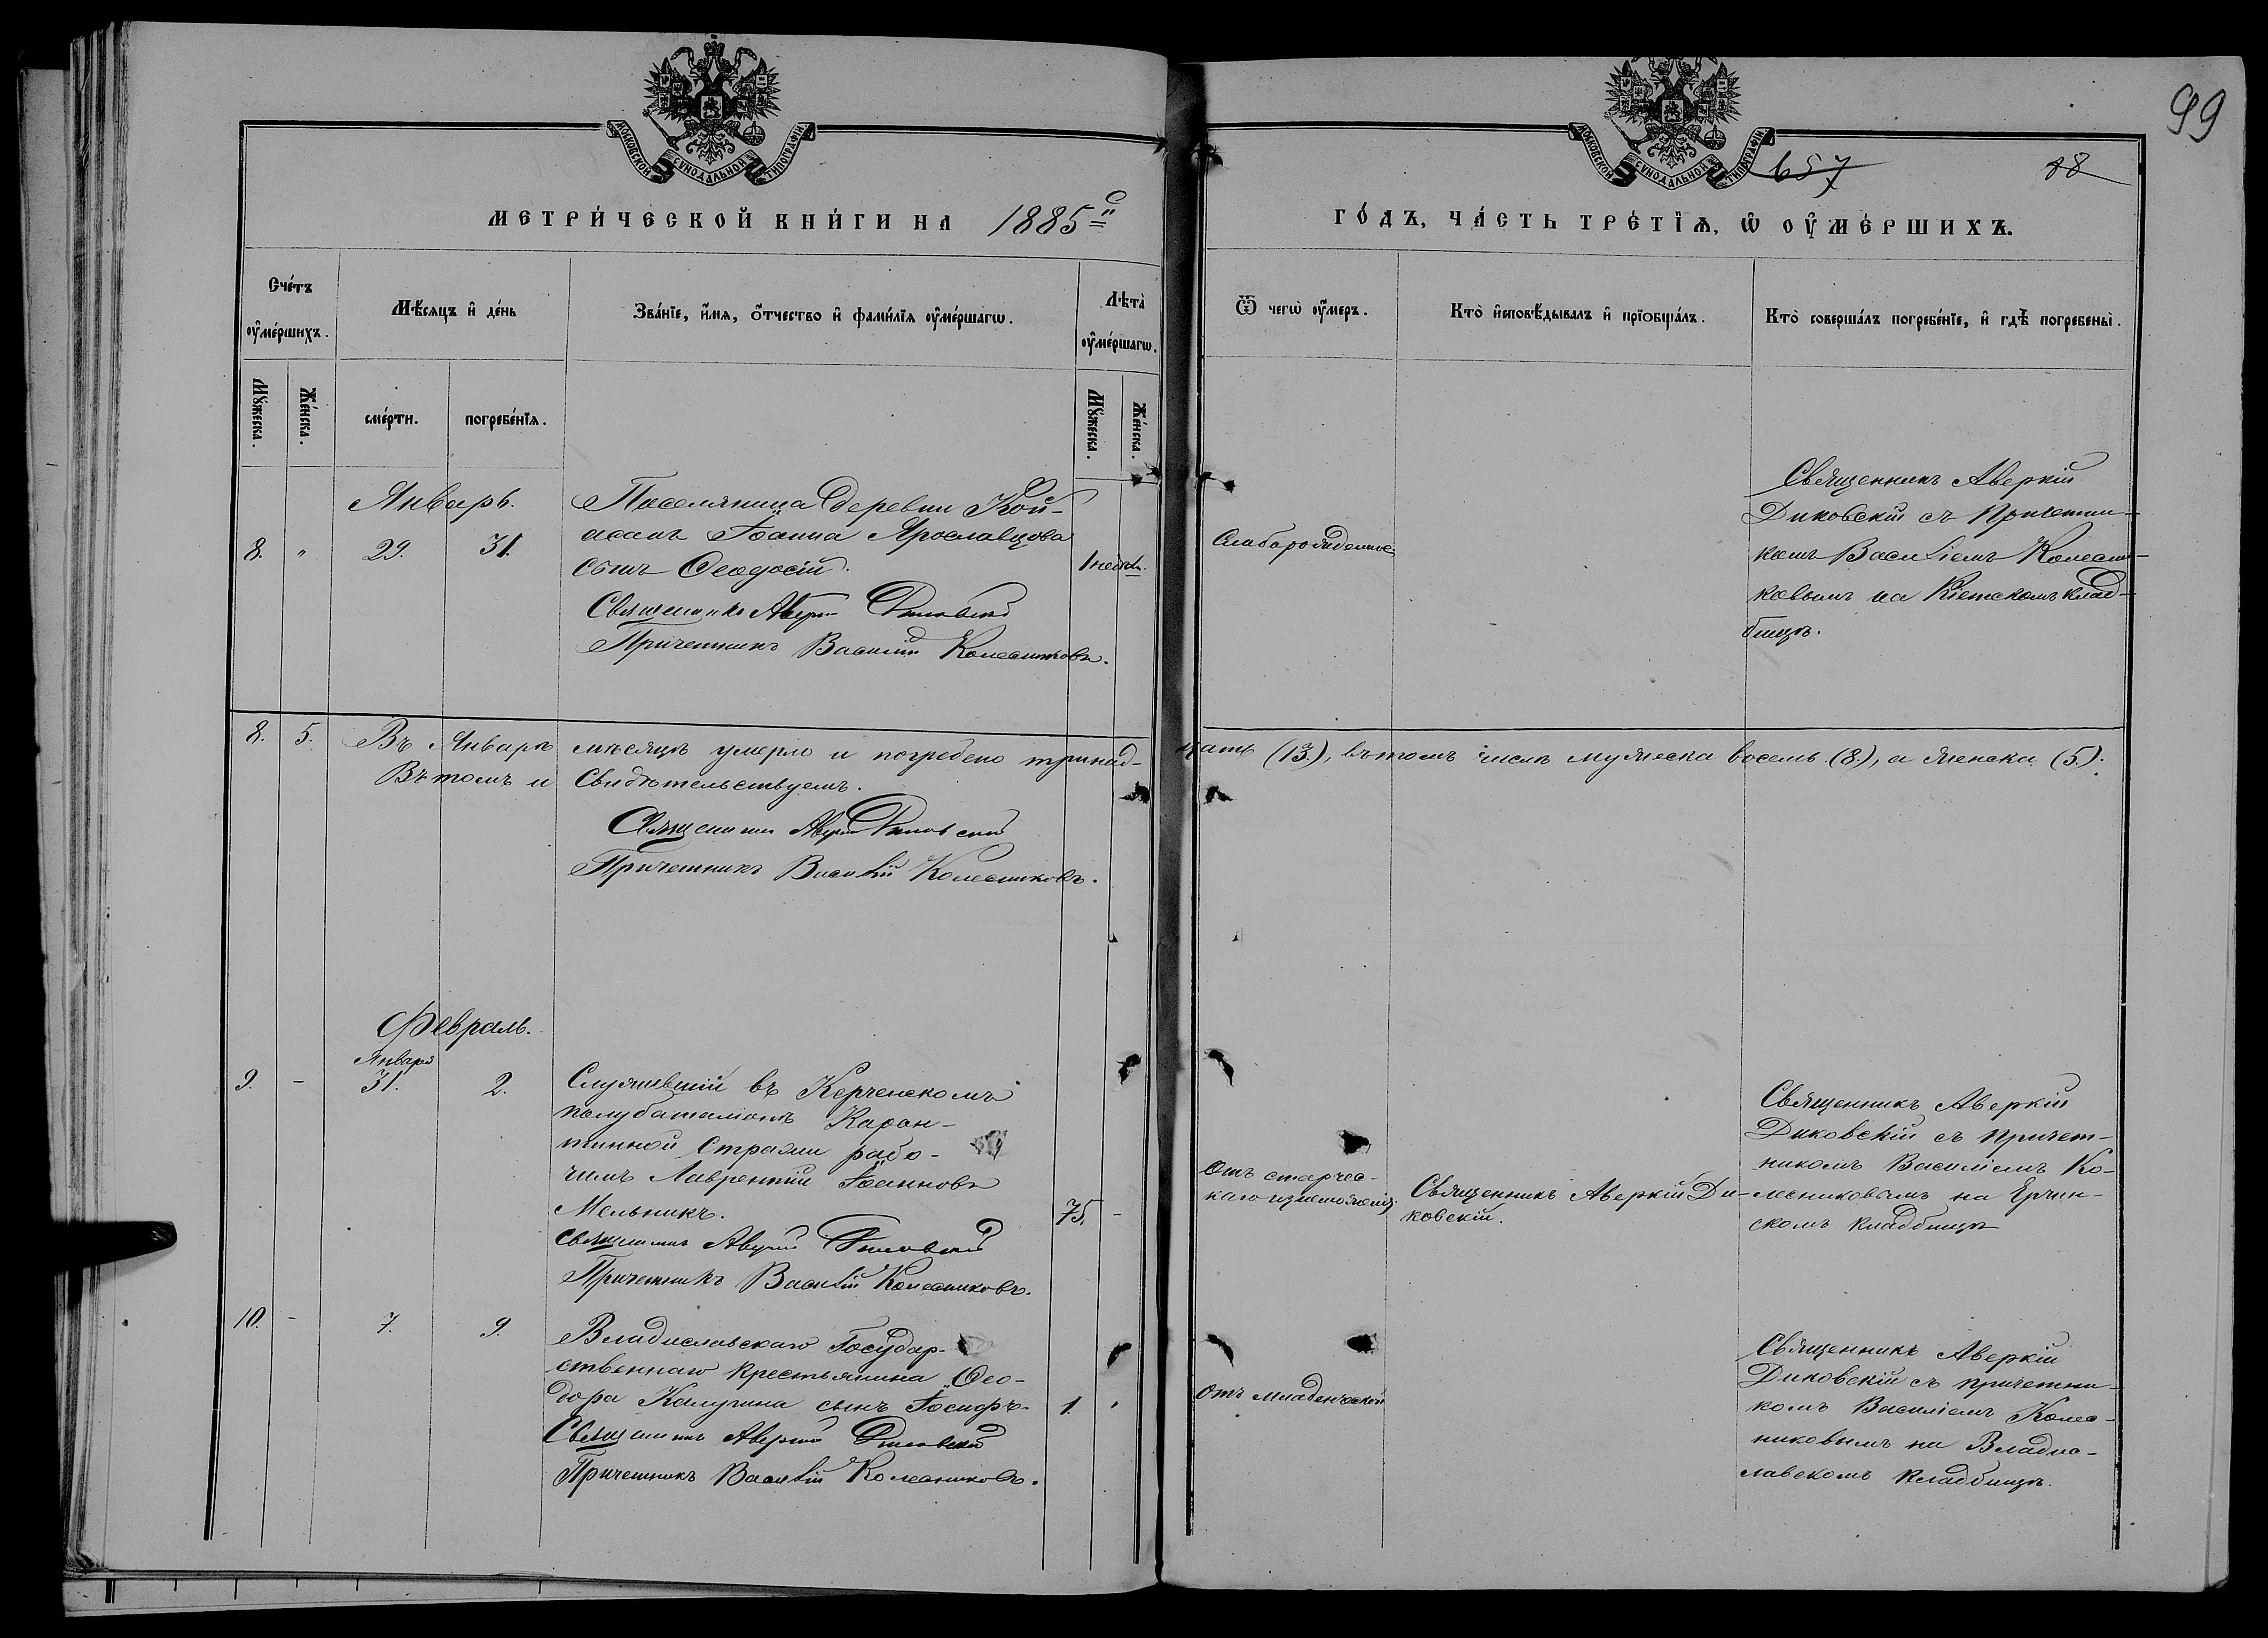 99
МОСКОВСКОЙ СѴНОДАЛЬНОЙ ТИПОГРАФІИ
МОСКОВСКОЙ СѴНОДАЛЬНОЙ ТИПОГРАФІИ
657
88
МЕТРИ́ЧЕСКОЙ КНИ́ГИ НА 1885й
ГО́ДЪ, ЧА́СТЬ ТРЕ́ТІѦ, Ѿ ОУ҆МЕ́РШИХЪ.
Сче́тъ оу҆ме́ршихъ.
Мѣ́сяцъ и҆ де́нь
Зва́нїе, и҆́мя, ѻ҆́тчество и҆ фами́лїя оу҆ме́ршагѡ.
Лѣта̀ оу҆ме́ршагѡ.
Ѿ чегѡ̀ оу҆́меръ.
Кто̀ и҆сповѣ́дывалъ и҆ прїѡбща́лъ.
Кто̀ соверша́лъ погребе́нїе, и҆ гдѣ̀ погребены̀.
Мꙋ́жеска.
Же́нска.
сме́рти.
погребе́нїя.
Мꙋ́жеска.
Же́нска.
Январь.
8. " 29. 31.
Поселянина деревни Кой-
асанъ Іоанна Ярославцова
сынъ Ѳеодосій.
1 недѣл.
Священникъ Аверкій Диковскій
Причетникъ Василій Колесниковъ.
Слаборожденное
Священникъ Аверкій
Диковскій съ Причетни-
комъ Василіемъ Колесни-
ковымъ на Кіетскомъ клад-
бищѣ.
8. 5. Въ Январѣ мѣсяцѣ умерло и погребено тринад-
цать (13), въ томъ числѣ мужеска восемь (8.), а женска (5).
Въ томъ и Свидѣтельствуемъ.
Священникъ Аверкій Диковскій
Причетникъ Василій Колесниковъ.
Февраль.
Января
9. - 31. 2.
Служившій въ Керченскомъ
полубаталіонѣ Каран-
тинной Стражи рабо-
чимъ Лаврентій Іоанновъ
Мельникъ.
75. -
Священникъ Аверкій Диковскій
Причетникъ Василій Колесниковъ.
Отъ старчес-
каго изнеможенія.
Священникъ Аверкій Ди-
ковскій.
Священникъ Аверкій
Диковскій съ причет-
никомъ Василіемъ Ко-
лесниковымъ на Ерчин-
скомъ кладбищѣ
10. - 7. 9.
Владиславскаго Государ-
ственнаго крестьянина Ѳео-
дора Калугина сынъ Іосифъ.
1. "
Священникъ Аверкій Диковскій
Причетникъ Василій Колесниковъ.
Отъ младенческой
Священникъ Аверкій
Диковскій съ причетни-
комъ Василіемъ Колес-
никовымъ на Владис-
лавскомъ кладбищѣ.